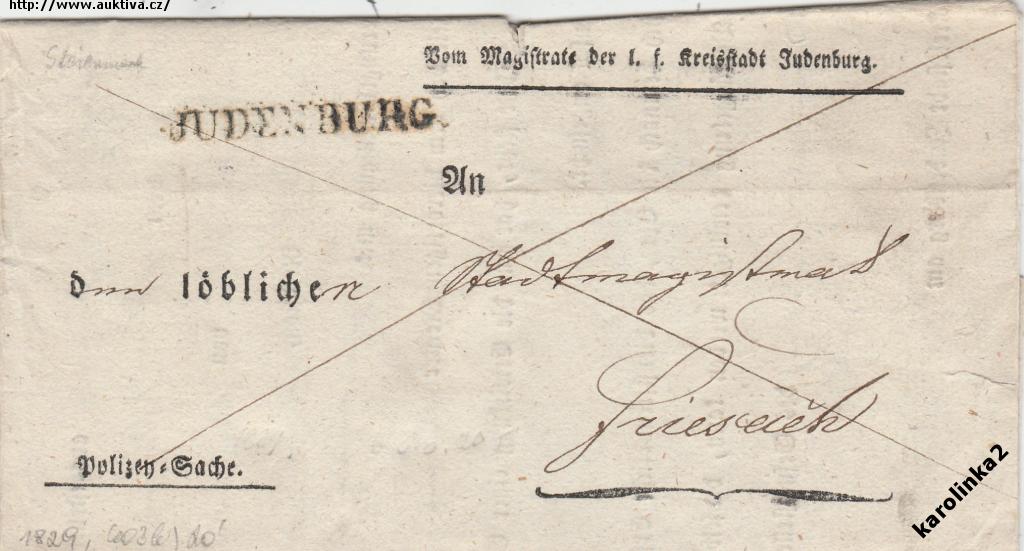 http://www.auktiva.cz/
Steiermark
Vom Magistrate der l. f. Kreisstadt Judenburg.
JUDENBURG
An
den löblichen Stadtmagistrat
Friesach
Polizey-Sache.
1829,
karolinka2